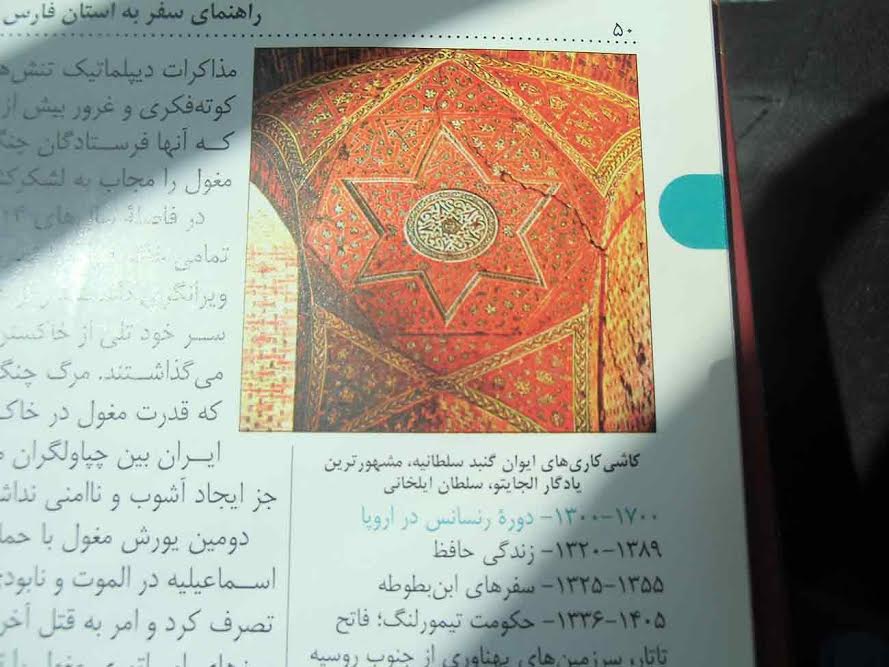 راهنمای سفر به استان فارس
۵۰
مذاکرات دیپلماتیک
کوته‌فکری و غرور بیش از
که آنها فرستادگان
مغول را مجاب به
در فاصلهٔ سال‌های
تمامی
ویرانگری
سر خود تلی از خاکستر
می‌گذاشتند. مرگ
که قدرت مغول در
ایران بین چپاولگران
جز ایجاد آشوب و ناامنی
دومین یورش مغول با
اسماعیلیه در الموت و
تصرف کرد و امر به قتل
کاشی‌کاری‌های ایوان گنبد سلطانیه، مشهورترین
یادگار الجایتو، سلطان ایلخانی
۱۷۰۰-۱۳۰۰- دورهٔ رنسانس در اروپا
۱۳۸۹-۱۳۲۰- زندگی حافظ
۱۳۵۵-۱۳۲۵- سفرهای ابن‌بطوطه
۱۴۰۵-۱۳۳۶- حکومت تیمورلنگ؛ فاتح
تاتار، سرزمین‌های پهناوری از جنوب روسیه